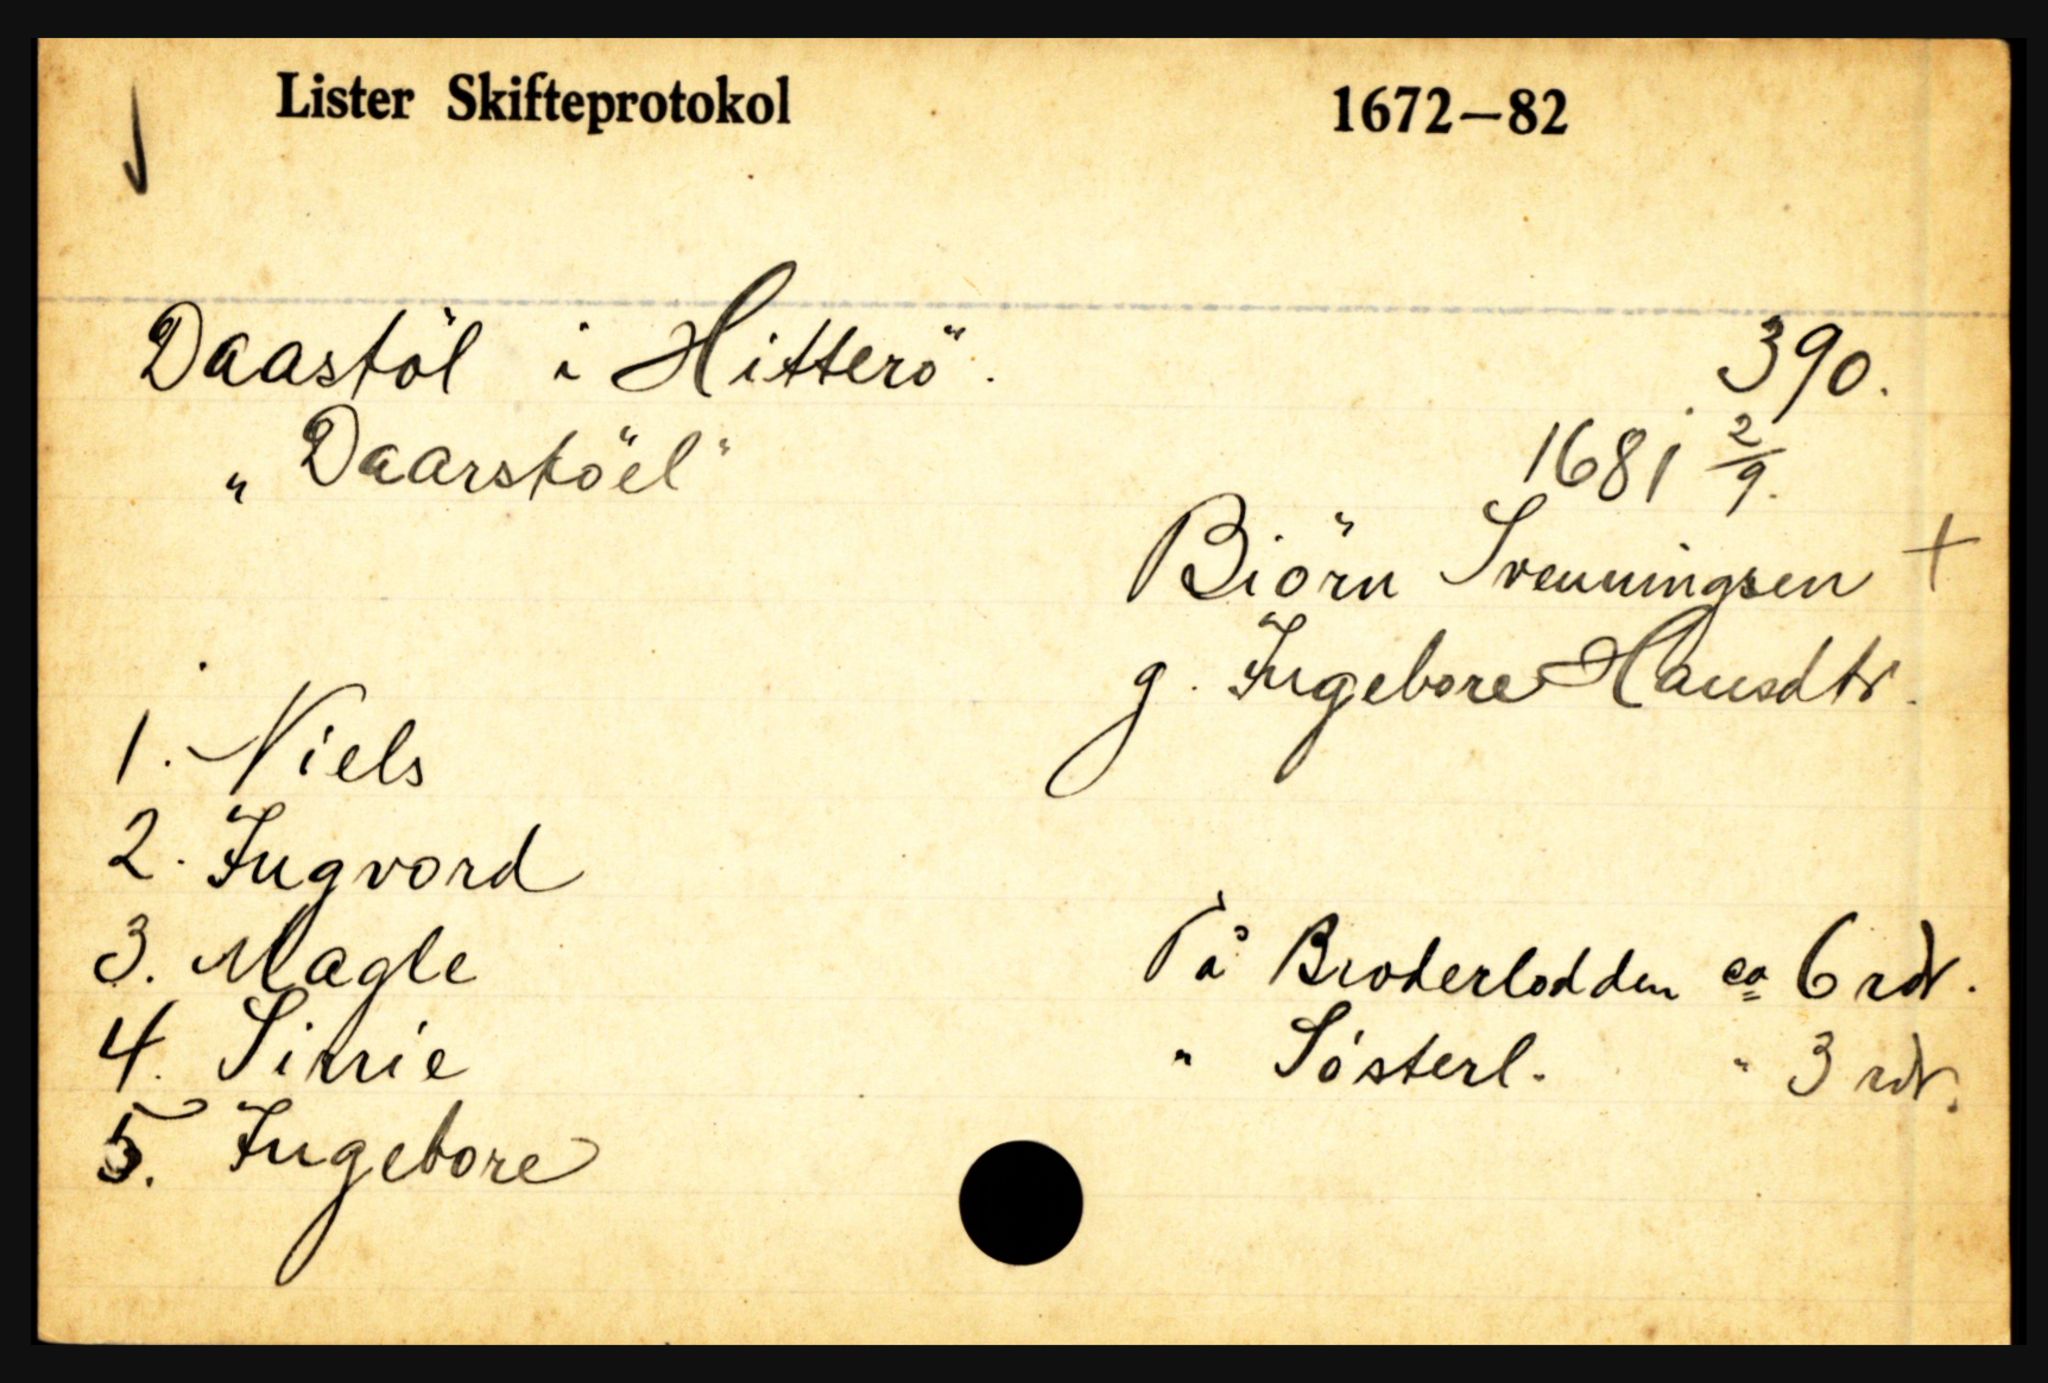 Lister Skifteprotokol 1672—82
Daastöl i Hitterö. 390.
"Daarstöel" 1681 2/9.
Biörn Svenningsen +
g. Ingebore Hansdtr.
1. Niels
2. Ingvord
3. Magle
På Broderlodden ca 6 rdr.
4. Sirrie
" Sösterl. " 3 rdr.
5. Ingebore